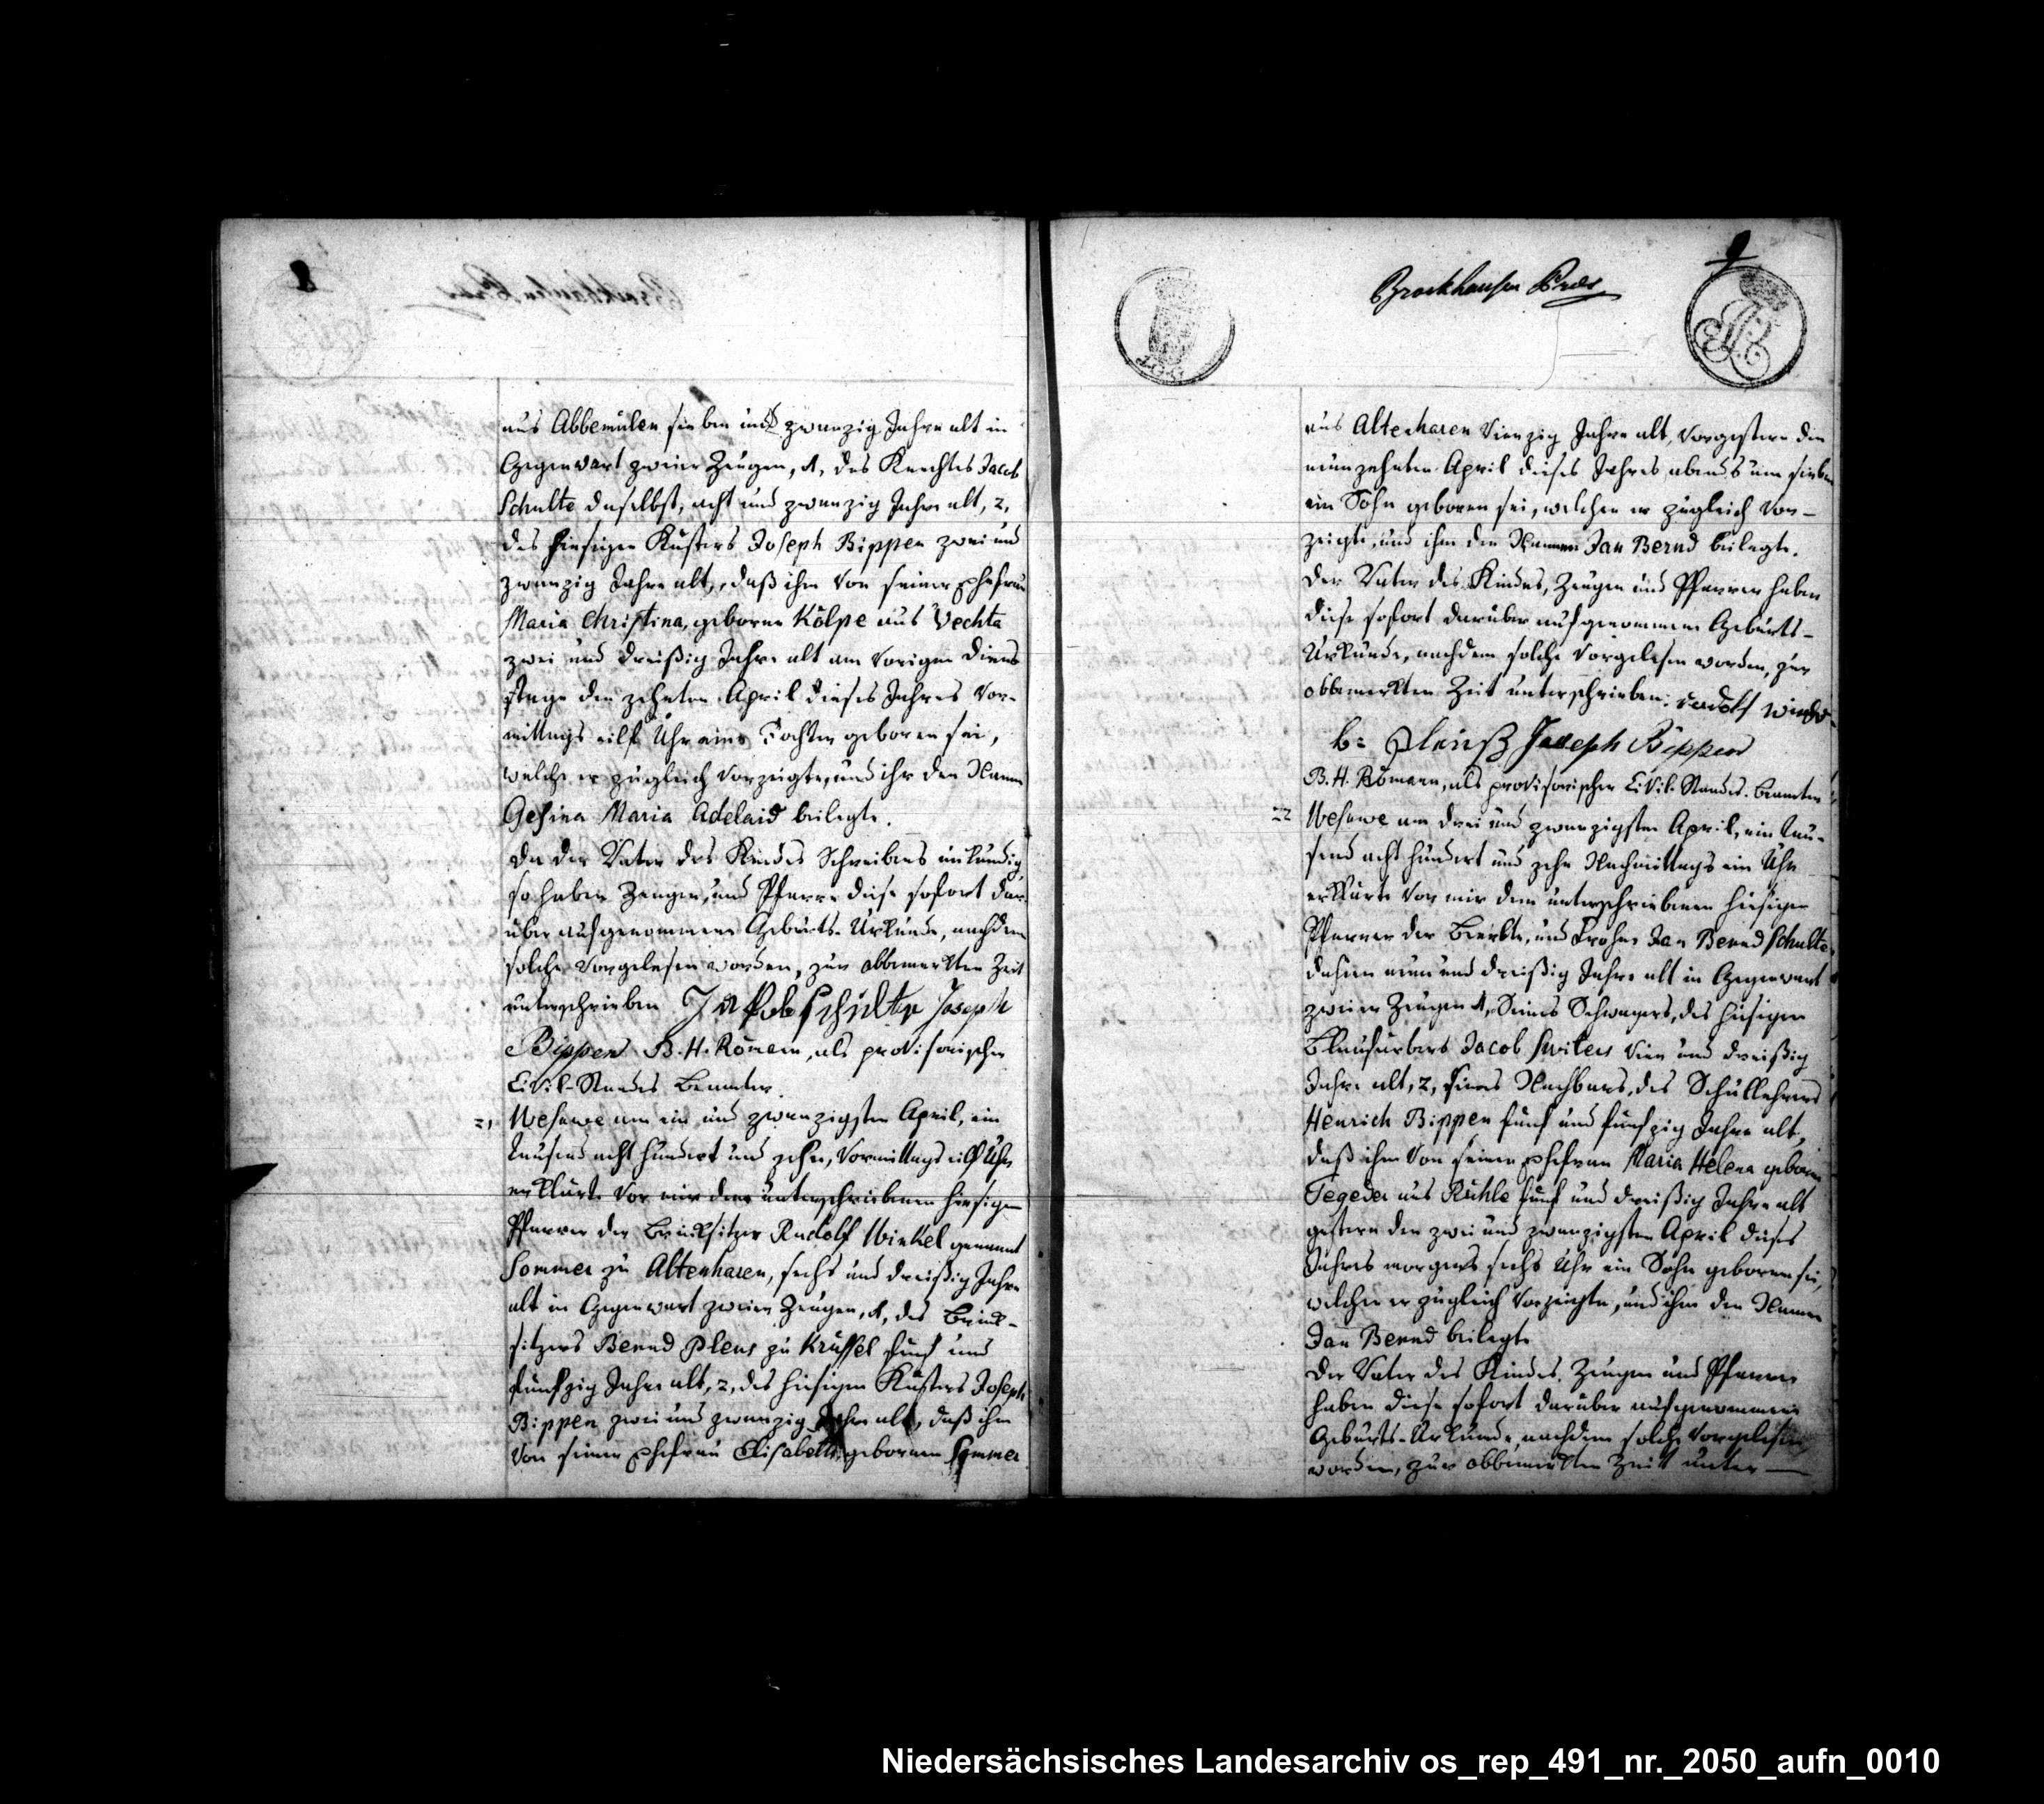 8
aus Abbemülen sieben und zwanzig Jahre alt in
Gegenwart zweier Zeugen, 1, des Knechtes Jacob
Schulte daselbst, acht und zwanzig Jahre alt, 2,
des hiesigen Küsters Joseph Bippen zwei und
zwanzig Jahre alt, daß ihm von seiner Ehefrau
Maria Christina, geborne Kölpe aus Vechta
zwei und dreißig Jahre alt am vorigen Diens
stage den zehnten April dieses Jahres Vor-
mittags eilf Uhr eine Tochter geboren sei,
welche er zugleich vorzeigte, und ihr den Namen
Gesina Maria Adelaid beilegte.
Da der Vater des Kindes Schreibens unkundig,
so haben Zeugen, und Pfarrer diese sofort dar-
über aufgenommene Geburts-Urkunde, nachdem
solche vorgelesen worden, zur obbemerkten Zeit
unterschrieben Jakob Schulte Joseph
Bippen B. H. Römann, als provisorischer
Civil-Standes Beamter
21 Wesuwe am ein und zwanzigsten April, ein
tausend acht hundert und zehn, Vormittags eilf Uhr
erklärte vor mir dem unterschriebenen hiesigen
Pfarrer der Brinksitzer Rudolf Winkel genannt
Sommer zu Altenharen, sechs und dreißig Jahre
alt in Gegenwart zweier Zeugen, 1, des Brink-
sitzers Bernd Pleus zu Krüssel fünf und
fünfzig Jahre alt, 2, des hiesigen Küsters Joseph
Bippen zwei und zwanzig Jahre alt, daß ihm
von seiner Ehefrau Elisabeth, gebornen Sommer
9
Brockhausen
aus Altenharen vierzig Jahre alt, vorgestern den
neunzehnten April dieses Jahres abends um sieben
ein Sohn geboren sei, welchen er zugleich vor-
zeigte, und ihm den Namen Jan Bernd beilegte.
Der Vater des Kindes, Zeugen und Pfarrer haben
diese sofort darüber aufgenommene Geburts-
Urkunde, nachdem solche vorgelesen worden, zur
obbemerkten Zeit unterschrieben. rudolf
b: Joseph Bippen
B. H. Römann, als provisorischer Civil-Standes-Beamter
22 Wesuwe am drei und zwanzigsten April, ein tau-
send acht hundert und zehn Nachmittags ein Uhr
erklärte vor mir dem unterschriebenen hiesigen
Pfarrer der Jan Bernd Schulte
dahier neun und dreißig Jahre alt in Gegenwart
zweier Zeugen 1, Seines Schwagers, des hiesigen
Blaufärbers Jacob Switers vier und dreißig
Jahre alt, 2, seines Nachbars, des Schullehrers
Henrich Bippen fünf und fünfzig Jahre alt,
daß ihm von seiner Ehefrau Maria Helena geborne
Tegeder aus Rühle fünf und dreißig Jahre alt
gestern den zwei und zwanzigsten April dieses
Jahres morgens sechs Uhr ein Sohn geboren sei,
welchen er zugleich vorzeigte, und ihm den Namen
Jan Bernd beilegte
Der Vater des Kindes, Zeugen und Pfarrer
haben diese sofort darüber aufgenommene
Geburts-Urkunde, nachdem solche vorgelesen
worden, zur obbemerkten Zeit unter—
Niedersächsisches Landesarchiv os_rep_491_nr._2050_aufn_0010